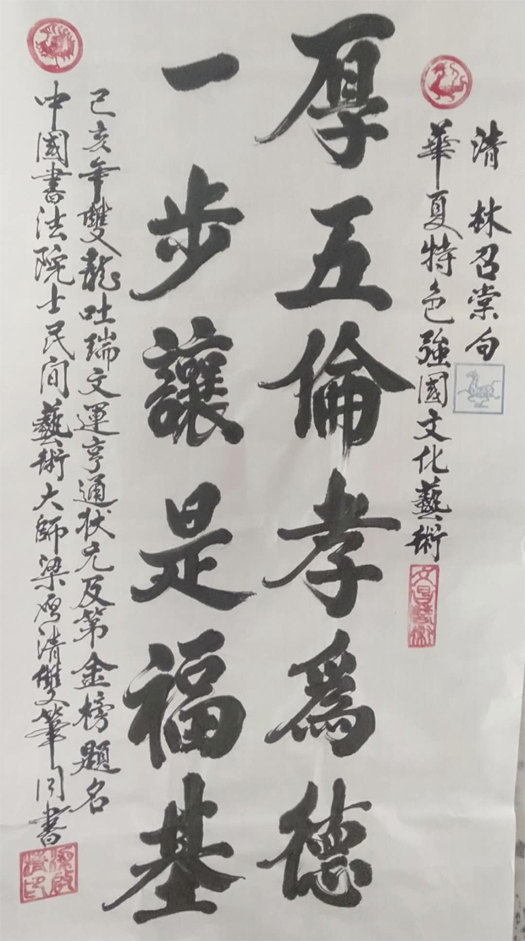 清 林召棠句
華夏特色強國文化藝術
厚五倫孝為德
一步讓是福基
己亥年雙龍吐瑞文運亨通狀元及第金榜題名
中國書法院士民间藝術大師梁雁清雙筆同書